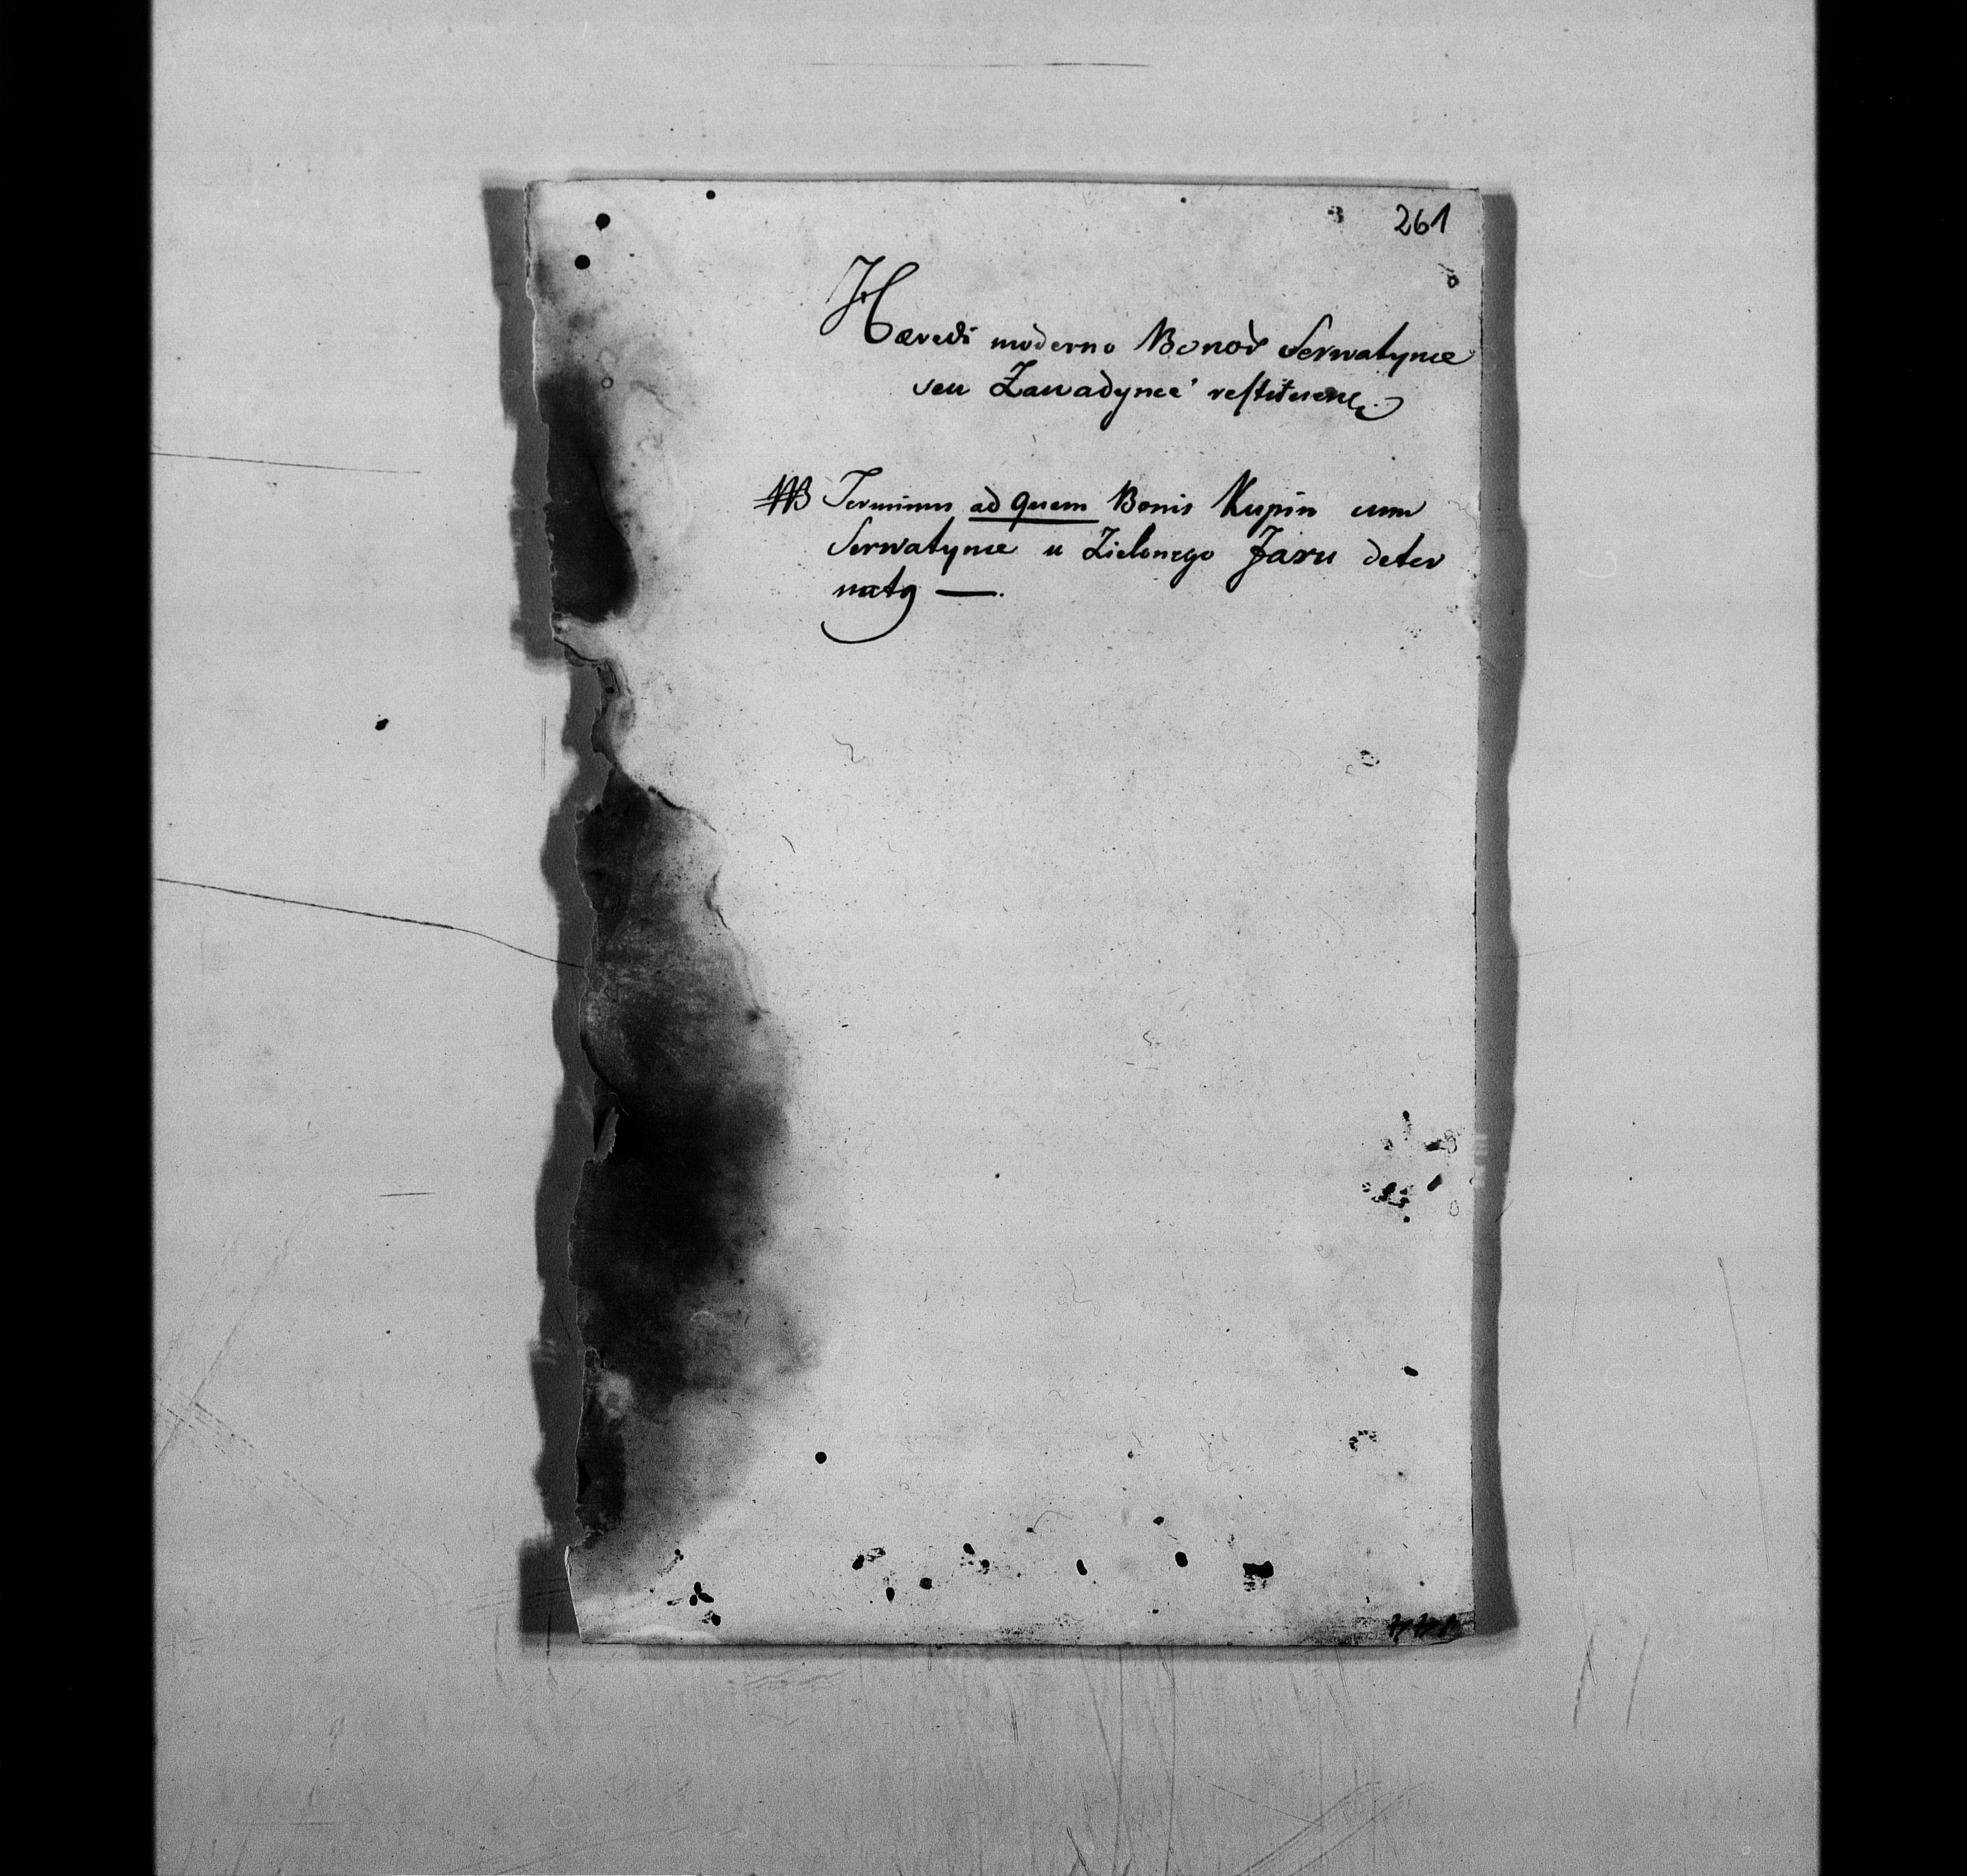 261
Hæredi moderno Bonor Serwatynce
seu Zawadynce restituend
NB Terminus ad quem Bonis Kupin cum
Serwatynce u Zielonego Jaru deter
natg —.